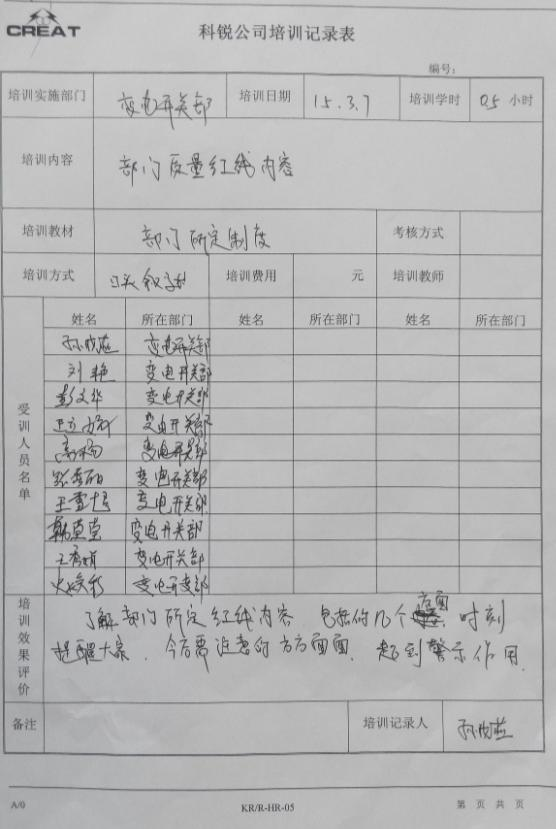 CREAT
科锐公司培训记录表
编号：
培训实施部门 变电开关部 培训日期 15.3.7 培训学时 0.5 小时
培训内容 部门质量红线内容
培训教材 部门研定制度 考核方式
培训方式 口头 培训费用 元 培训教师
受训人员名单
姓名 所在部门 姓名 所在部门 姓名 所在部门
变电开关部
刘艳 变电开关部
彭文华 变电开关部
变电开关部
高杨 变电开关部
变电开关部
变电开关部
变电开关部
变电开关部
变电开关部
培训效果评价
了解部门研定红线内容 包括的几个方面 时刻
提醒大家、今后需注意的方方面面、起到警示作用
备注 培训记录人
A/0 KR/R-HR-05 第 页 共 页